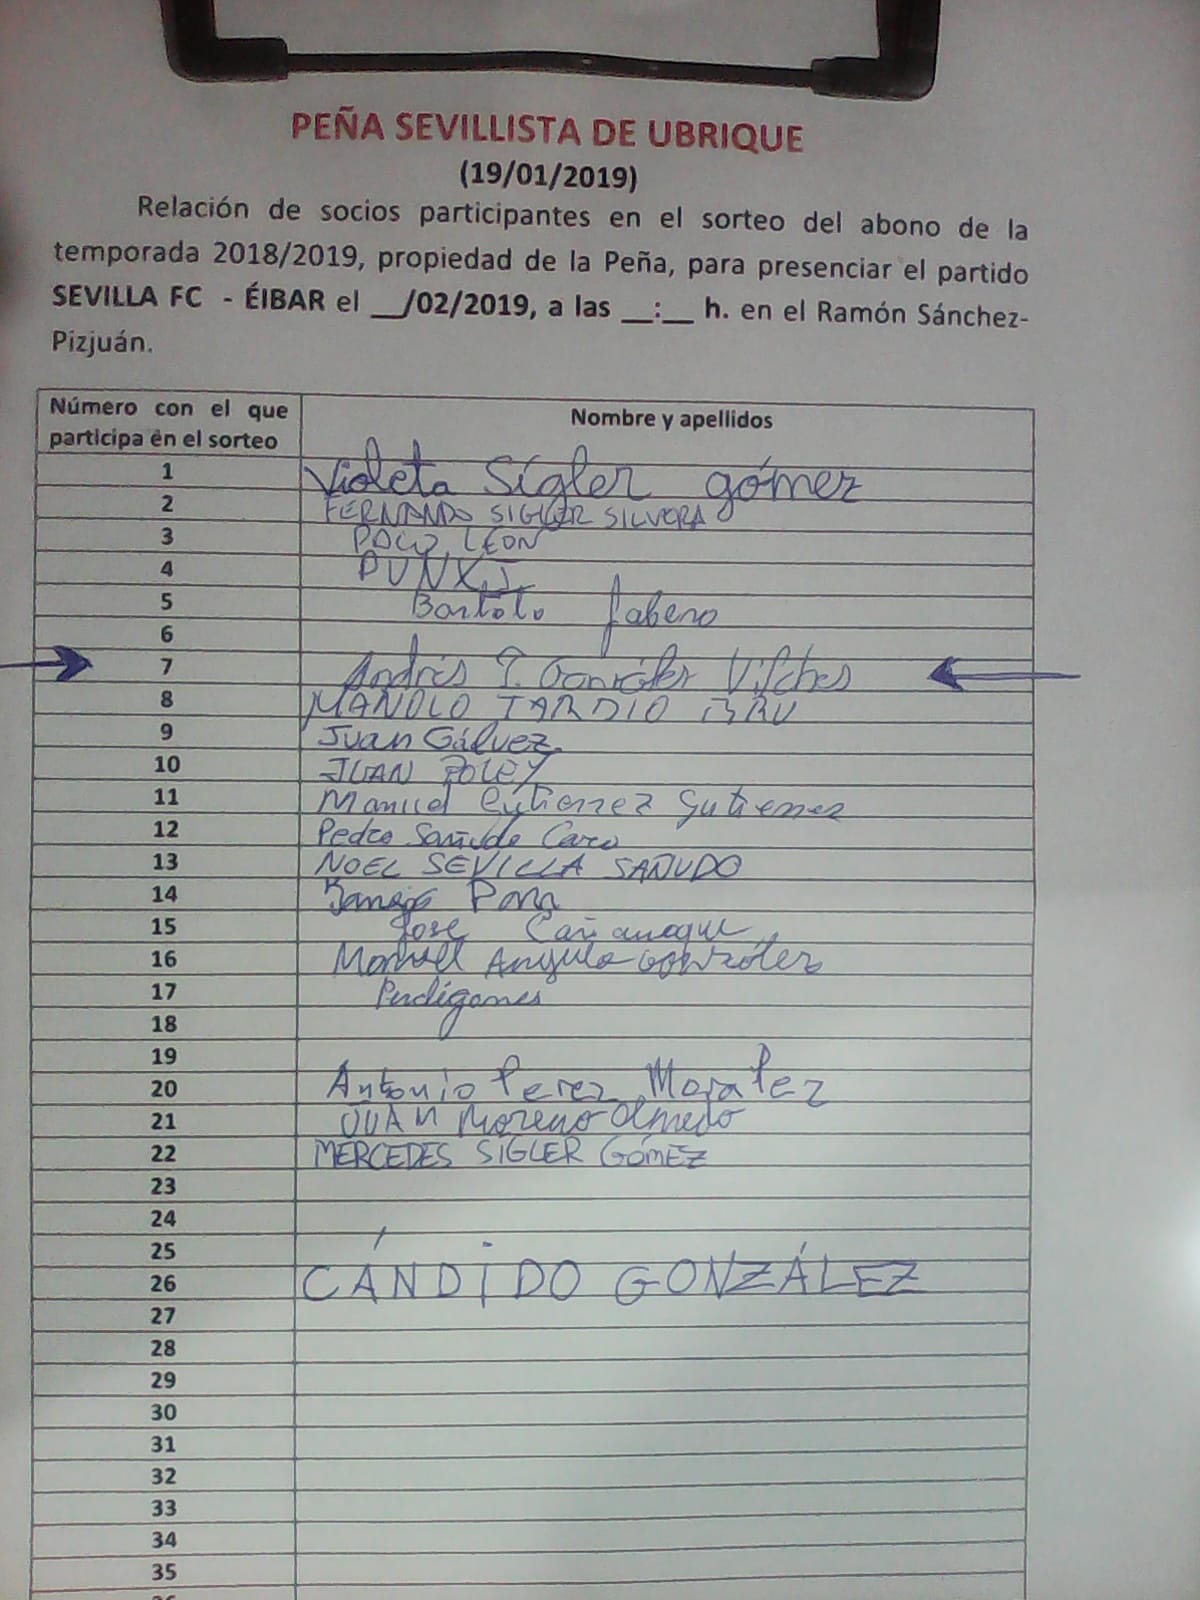 PEÑA SEVILLISTA DE UBRIQUE
(19/01/2019)
Relación de socios participantes en el sorteo del abono de la
temporada 2018/2019, propiedad de la Peña, para presenciar el partido
SEVILLA FC - ÉIBAR el __/02/2019, a las __:__ h. en el Ramón Sánchez-
Pizjuán.
Número con el que participa en el sorteo Nombre y apellidos
1 Violeta Sígler gómez
2 FERNANDO SIGLER SILVERA
3 PACO LEON
4
5 Bartolo
6
7 Andrés J. González Vilches
8 MANOLO TARDIO BRU
9 Juan Gálvez
10 JUAN POLEY
11 Manuel Gutierrez Gutierrez
12 Pedro Sañudo Caro
13 NOEL SEVILLA SAÑUDO
14
15 José
16 Manuel Angulo González
17 Perdigones
18
19
20 Antonio Perez
21 JUAN Moreno Olmedo
22 MERCEDES SIGLER GÓMEZ
23
24
25
26 CÁNDIDO GONZÁLEZ
27
28
29
30
31
32
33
34
35